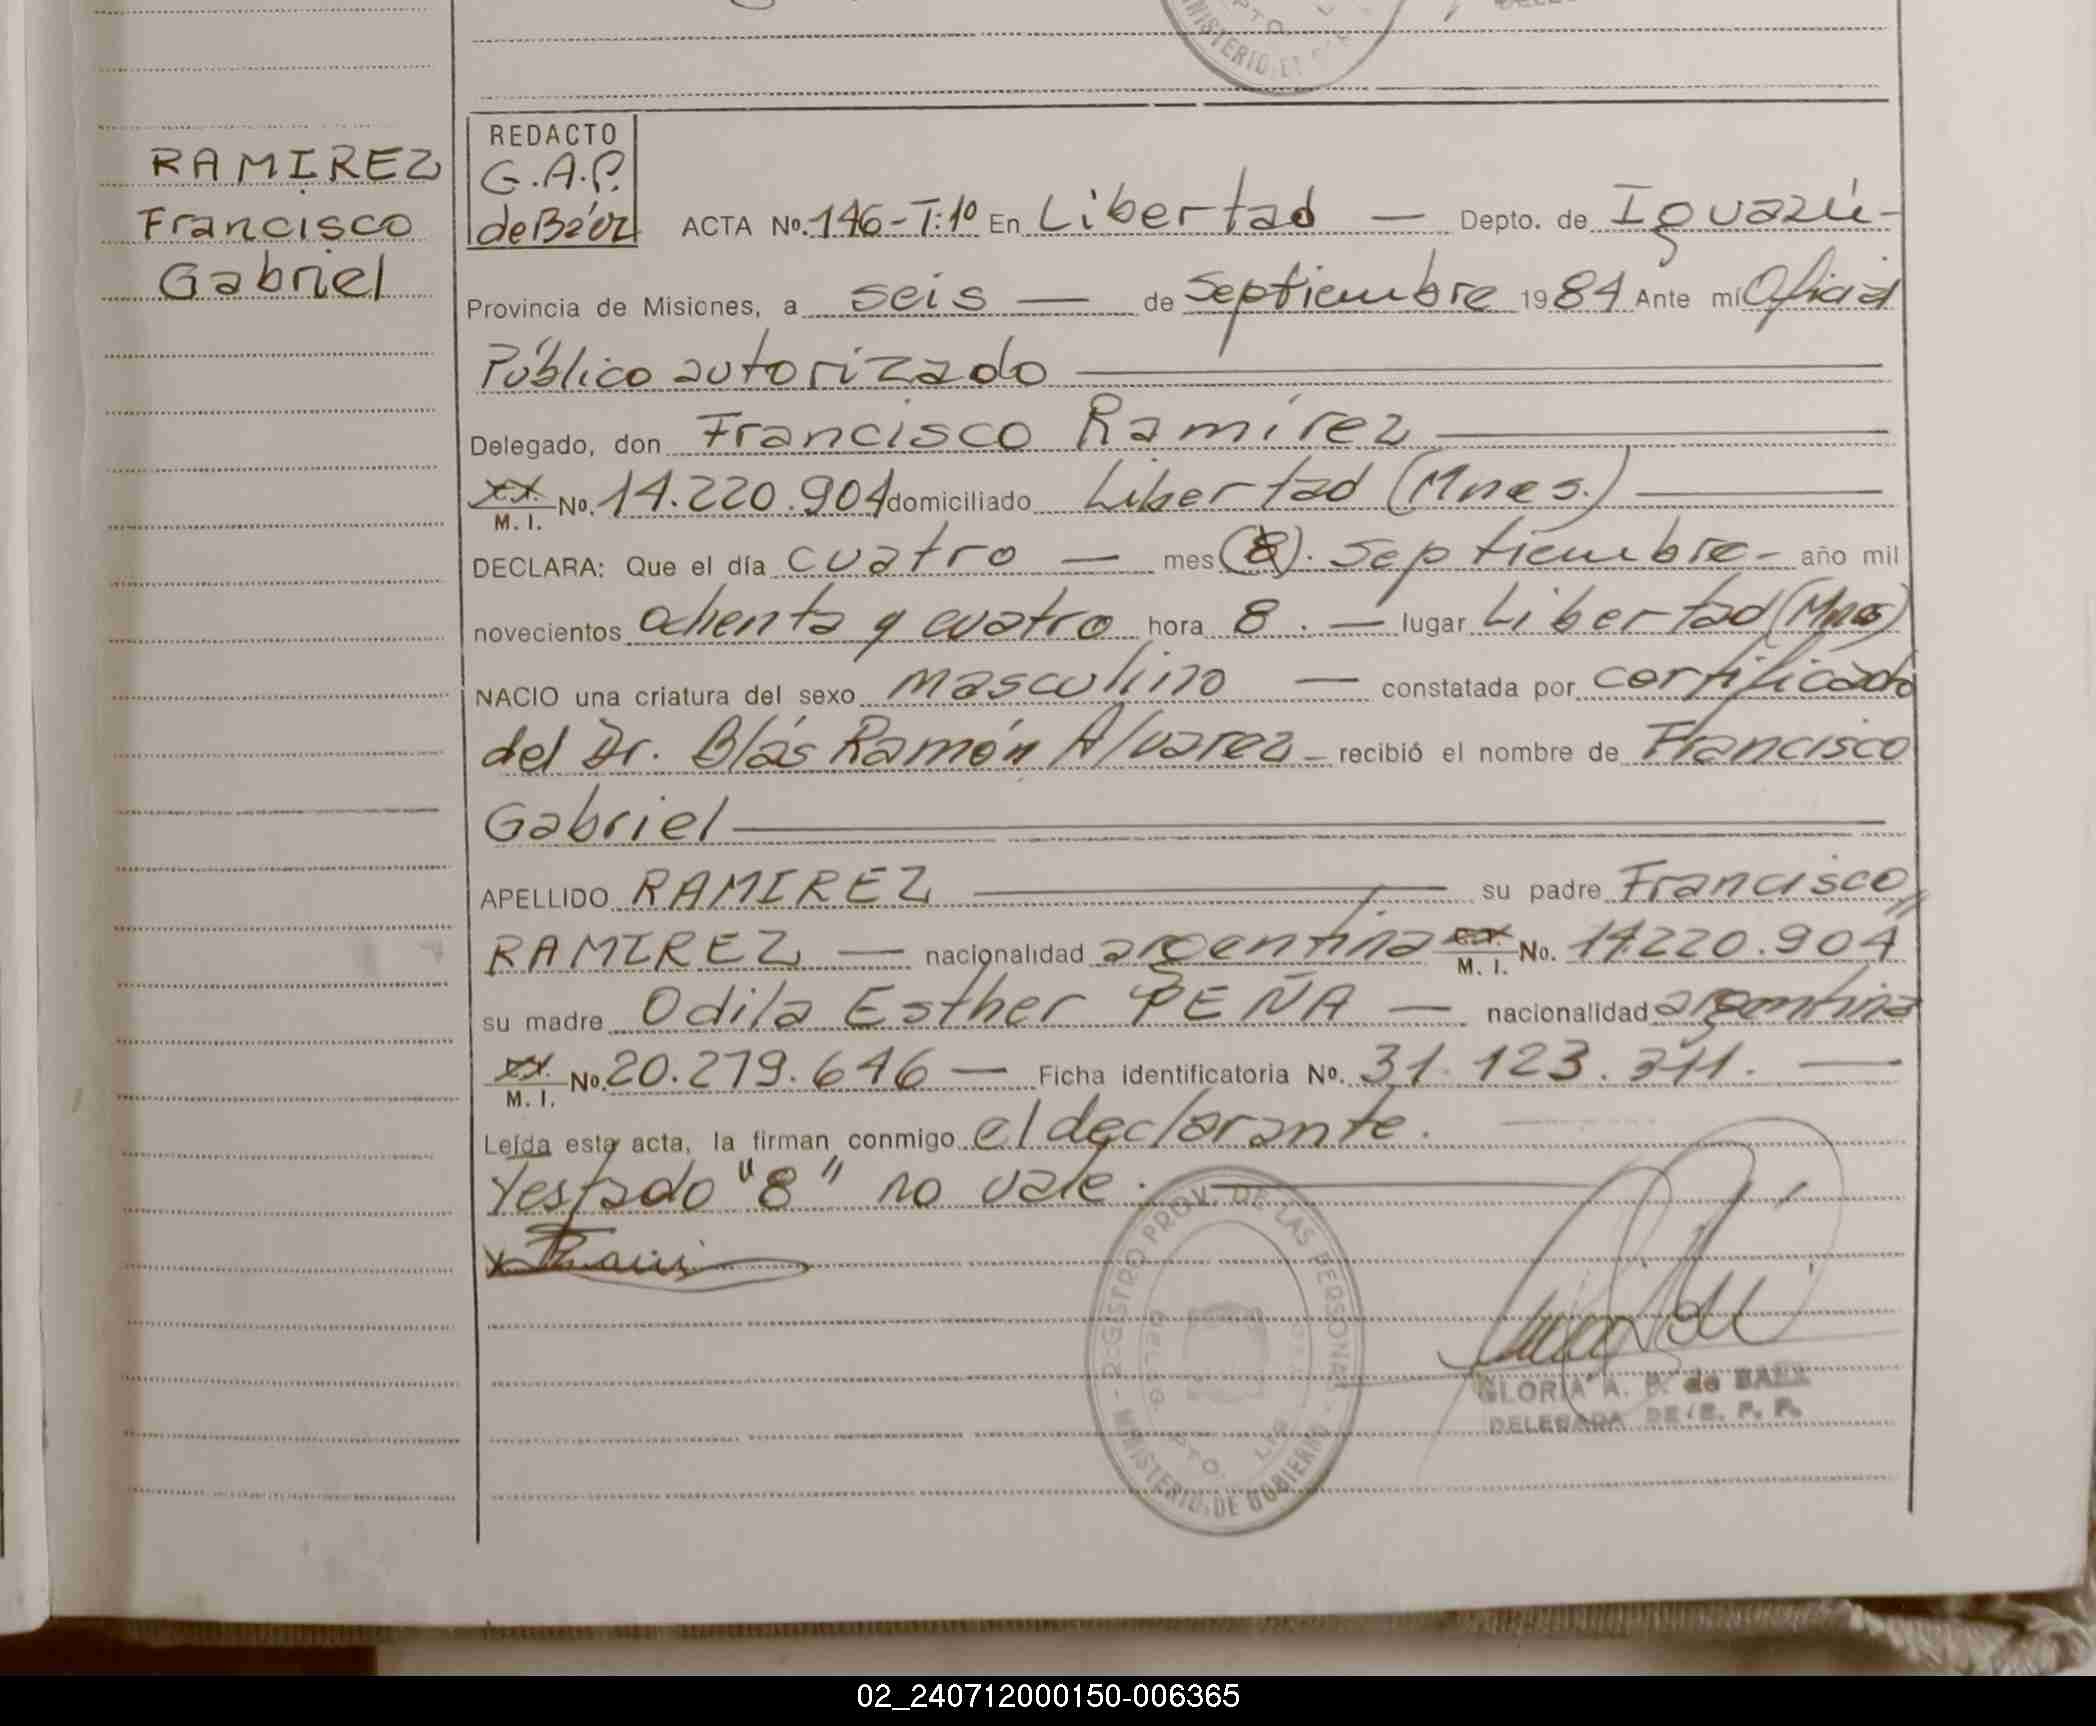 RAMIREZ
Francisco
Gabriel
REDACTO
G.A.P.
de Báez
ACTA Nº. 146-T:1º En Libertad — Depto. de Iguazú-
Provincia de Misiones, a seis — de Septiembre 1984 Ante mí Oficial
Público autorizado
Delegado, don Francisco Ramírez
M. I. Nº. 14.220.904 domiciliado Libertad (Mnes.)
DECLARA: Que el día cuatro — mes (8). Septiembre - año mil
novecientos ochenta y cuatro hora 8. — lugar Libertad (Mnes)
NACIO una criatura del sexo masculino — constatada por certificado
del Dr. Blás Ramón Alvarez - recibió el nombre de Francisco
Gabriel
APELLIDO RAMIREZ — su padre Francisco
RAMIREZ — nacionalidad argentina M. I. No. 14.220.904
su madre Odila Esther PEÑA — nacionalidad argentina
M. I. Nº. 20.279.646 — Ficha identificatoria Nº. 31.123.341. —
Leída esta acta, la firman conmigo el declarante.
Testado "8" no vale.
REGISTRO PROV. DE LAS PERSONAS
MINISTERIO DE GOBIERNO
GLORIA A. P. de BAEZ
DELEGADA DE R. P. P.
02_240712000150-006365